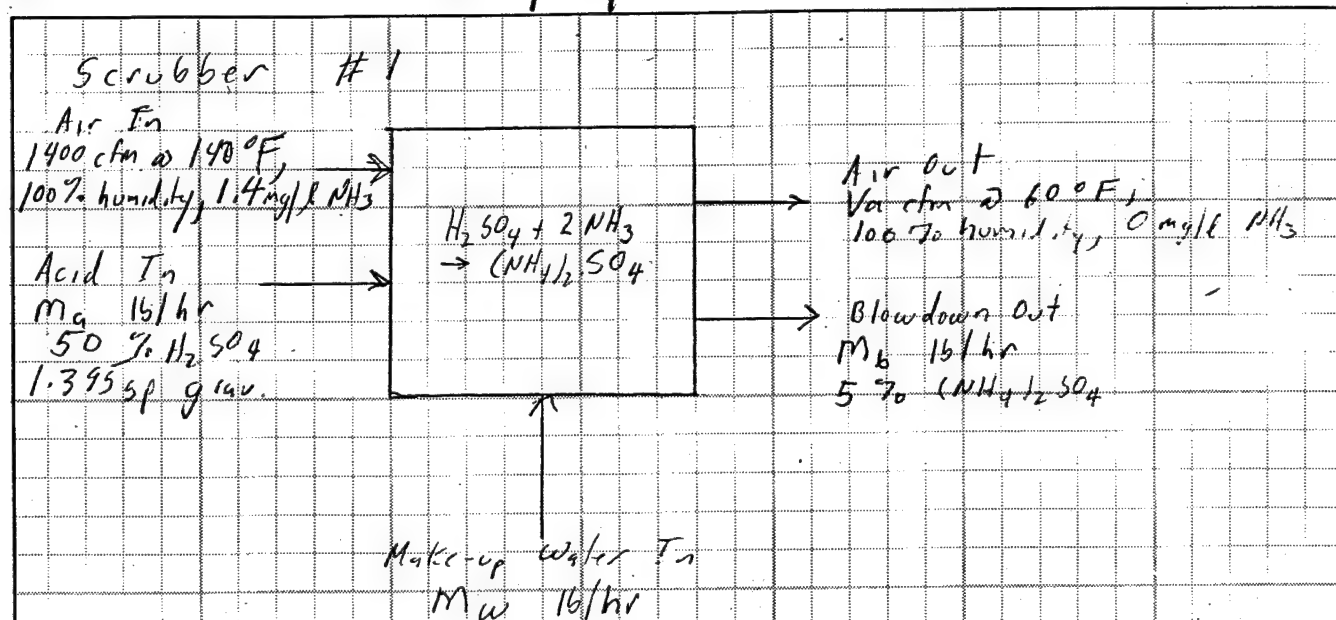 Scrubber #1
Air In
1400 cfm @ 140°F,
100% humidity, 1.4 mg/l NH3
Acid In
Ma lb/hr
50 % H2SO4
1.395 sp grav.
H2SO4 + 2 NH3
→ (NH4)2SO4
Air Out
Va cfm @ 60°F,
100 % humidity, 0 mg/l NH3
Blowdown Out
Mb lb/hr
5 % (NH4)2SO4
Make-up Water In
Mw lb/hr